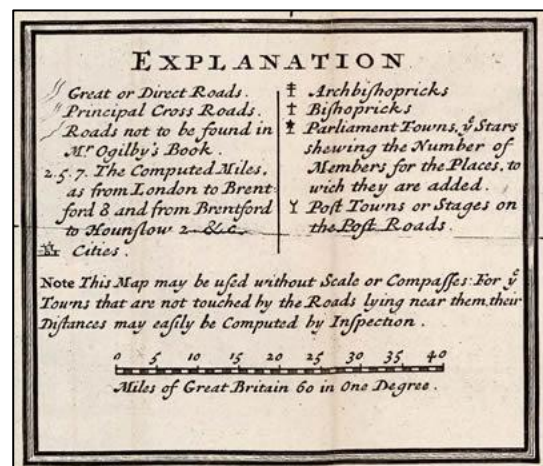 EXPLANATION
Great or Direct Roads.
Principal Cross Roads.
Roads not to be found in
Mr Ogilby's Book.
2.5.7. The Computed Miles,
as from London to Brent
ford 8 and from Brentford
to Hounslow 2 &c.
Cities.
Archbishopricks
Bishopricks
Parliament Towns, ye Stars
shewing the Number of
Members for the Places, to
wich they are added.
Post Towns or Stages on
the Post Roads.
Note This Map may be used without Scale or Compasses: For ye
Towns that are not touched by the Roads lying near them, their
Distances may easily be Computed by Inspection.
0 5 10 15 20 25 30 35 40
Miles of Great Britain 60 in One Degree.